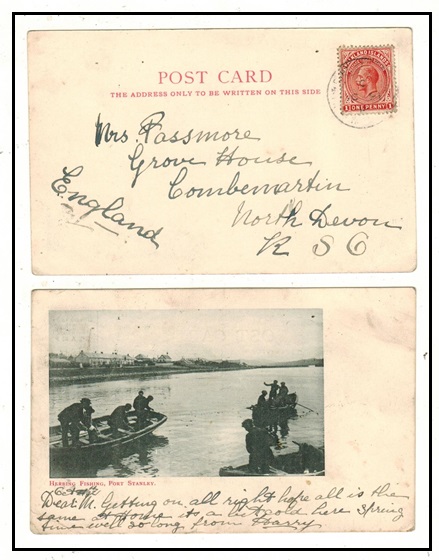 POST CARD
THE ADDRESS ONLY TO BE WRITTEN ON THIS SIDE
FALKLAND ISLANDS
ONE PENNY
Mrs. Passmore
Grove House
Combemartin
North Devon
England
HERRING FISHING, PORT STANLEY.
Dear M. Getting on all right hope all is the
same at home its a bit cold here spring
time well so long from Harry